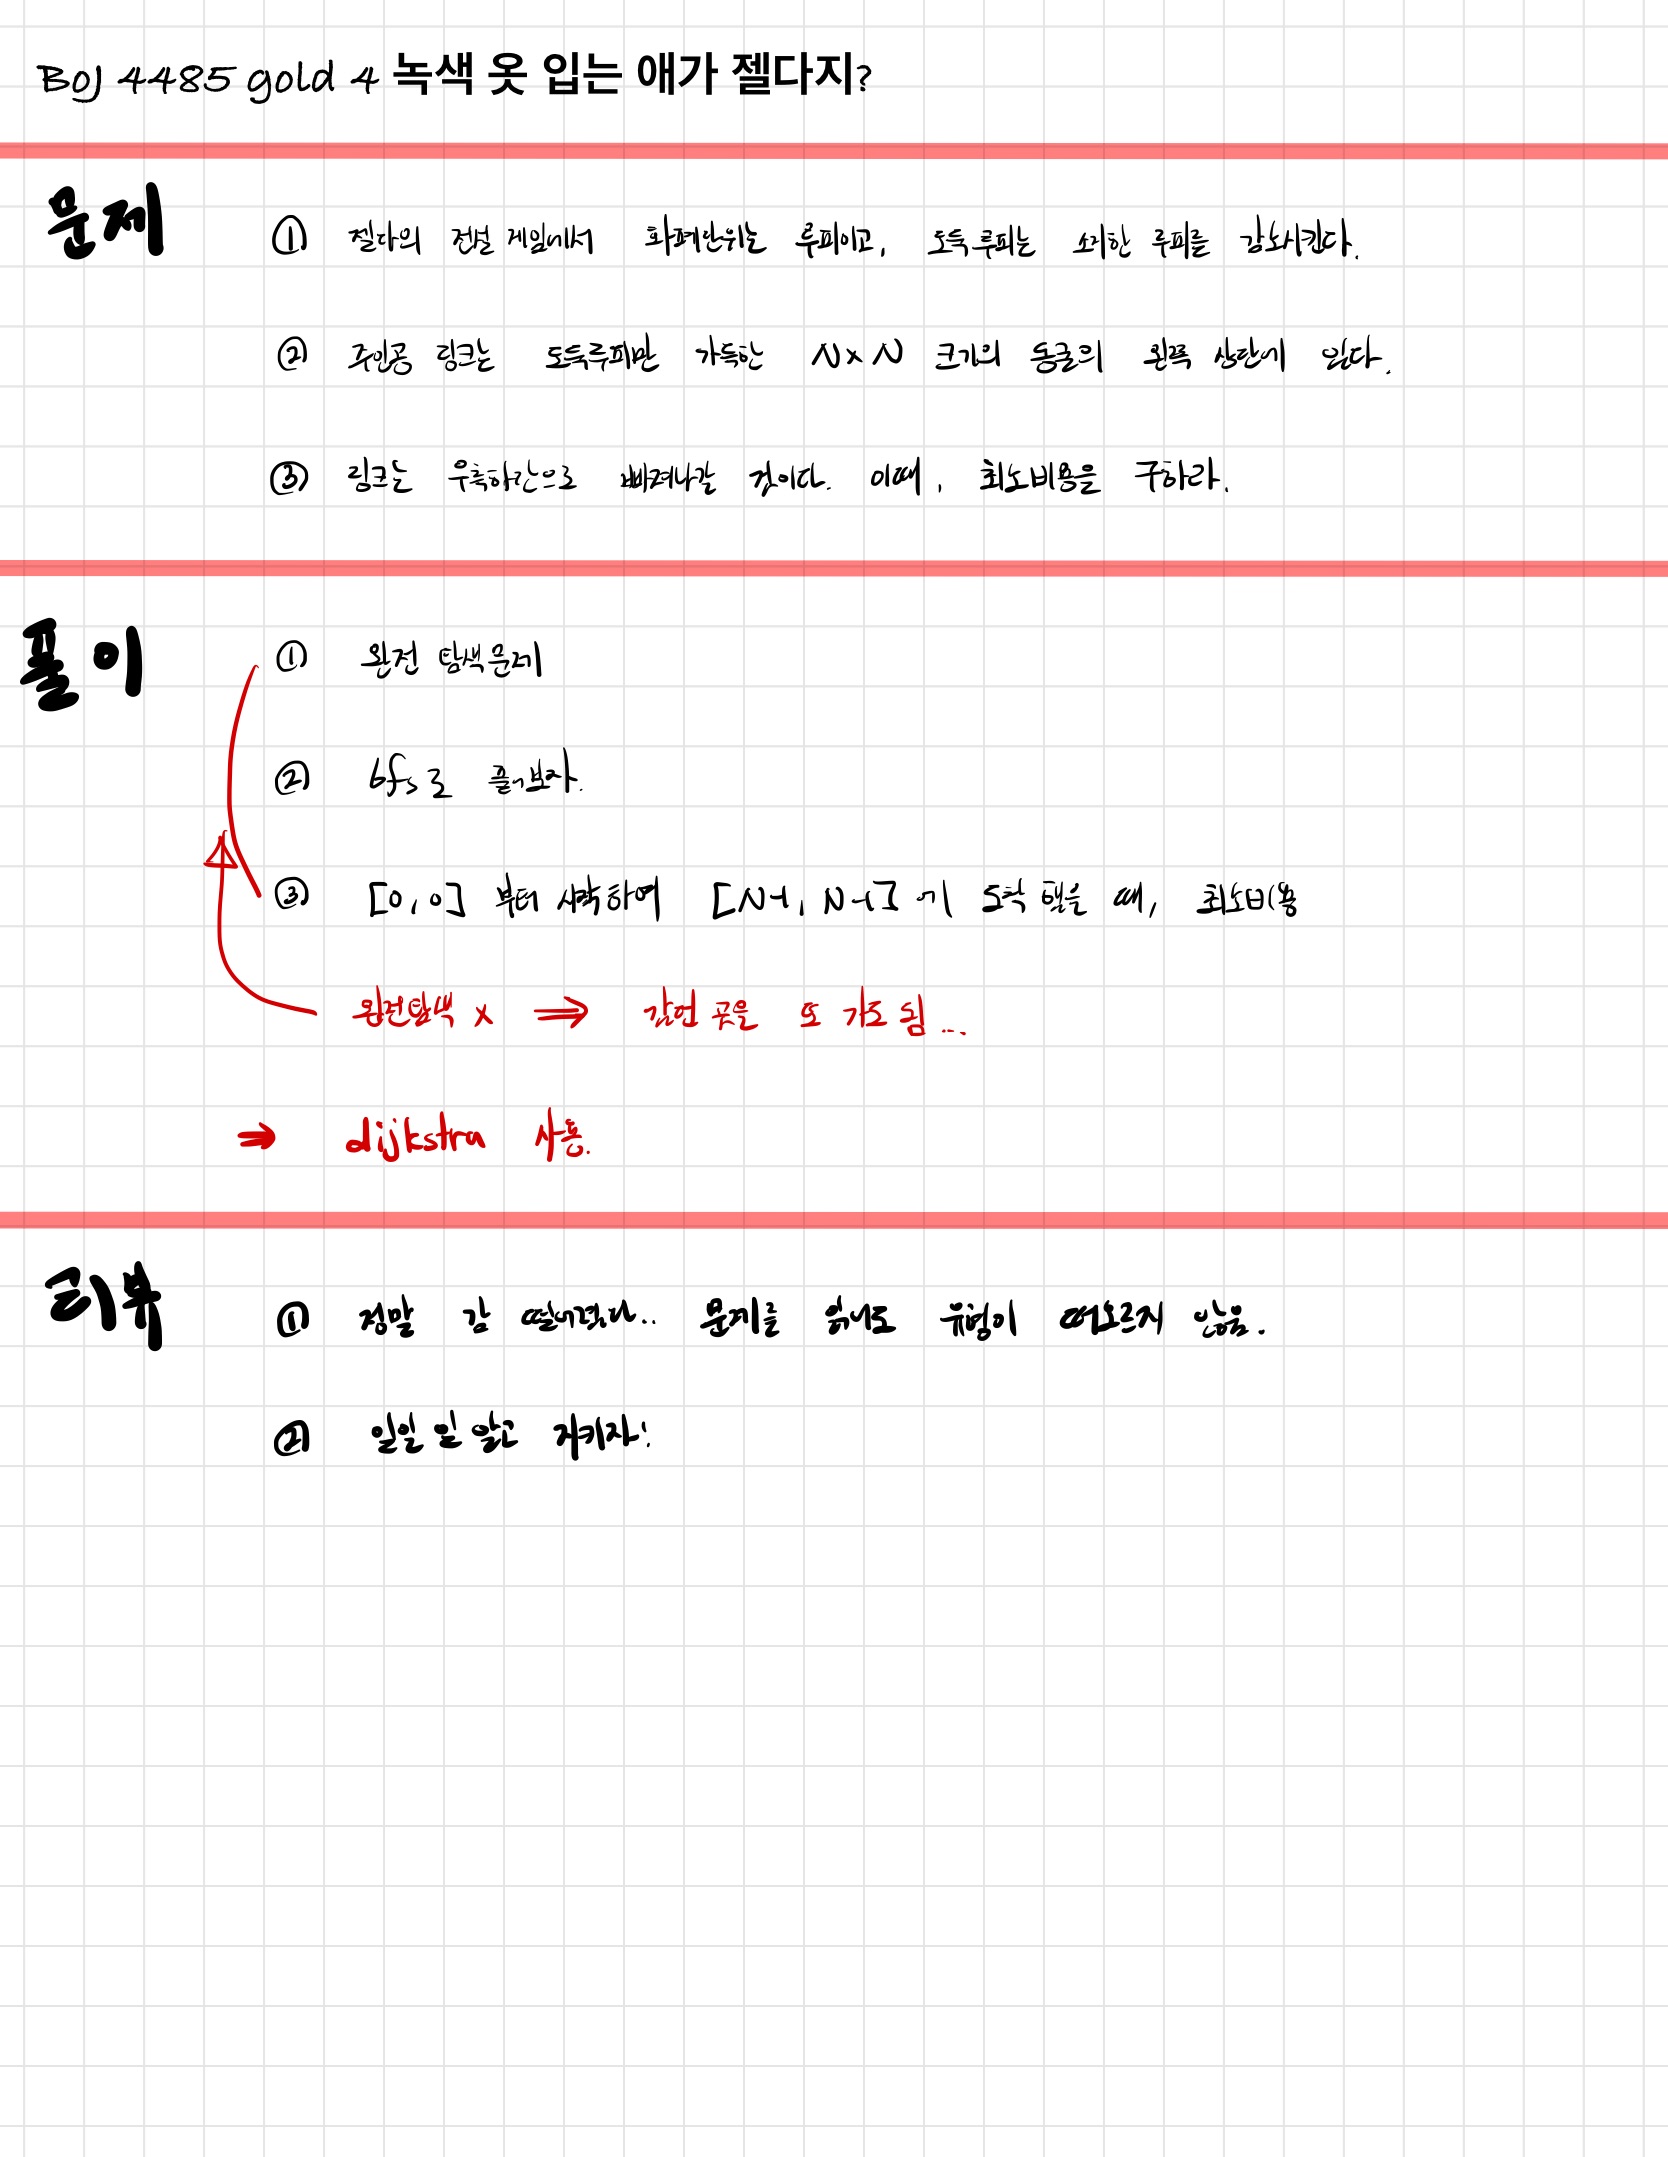 BOJ 4485 gold 4 녹색 옷 입는 애가 젤다지?
문제
① 젤다의 전설 게임에서 화폐단위는 루피이고, 도둑루피는 소지한 루피를 감소시킨다.
② 주인공 링크는 도둑루피만 가득한 N×N 크기의 동굴의 왼쪽 상단에 있다.
③ 링크는 우측하단으로 빠져나갈 것이다. 이때, 최소비용을 구하라.
풀이
① 완전 탐색문제
② bfs로 풀어보자.
③ [0,0] 부터 시작하여 [N-1, N-1]에 도착 했을 때, 최소비용
완전탐색 x ⇒ 갔던 곳을 또 가도 됨...
⇒ dijkstra 사용.
리뷰
① 정말 감 떨어졌다.. 문제를 읽어도 유형이 떠오르지 않음.
② 일일 일 알고 지키자!